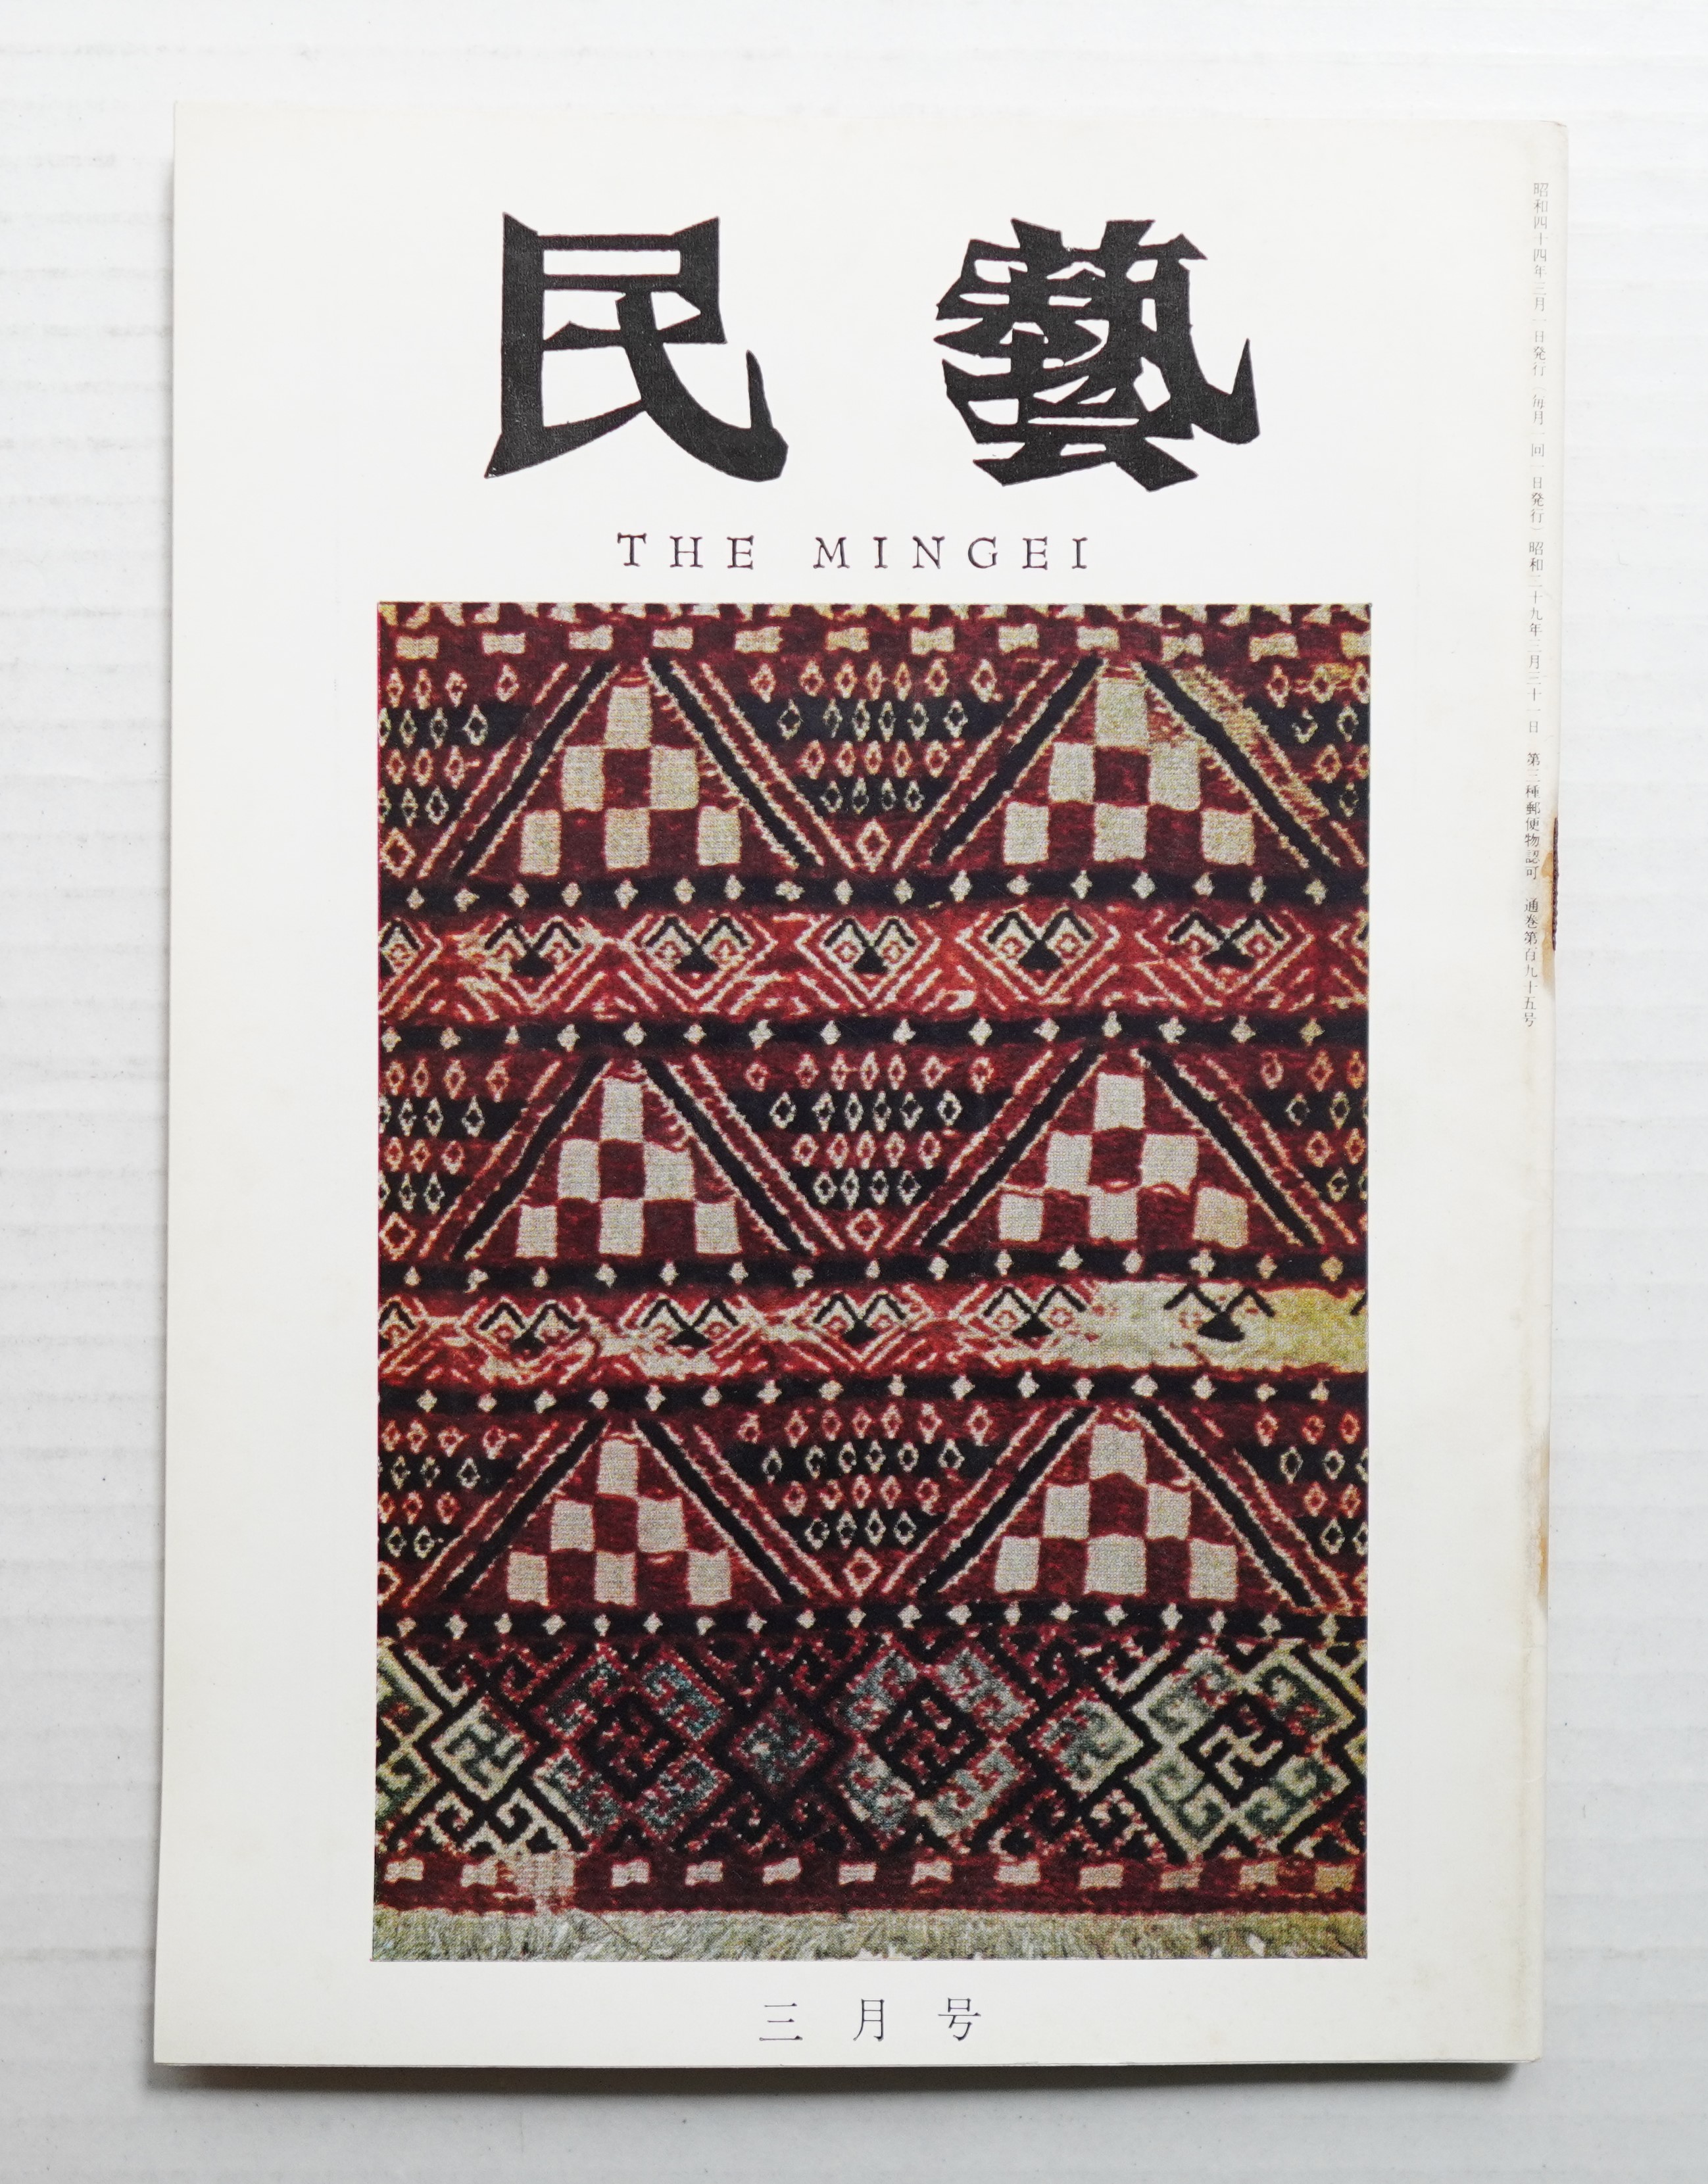 民藝
THE MINGEI
三月号
昭和四十四年三月一日発行（毎月一回一日発行）昭和二十九年三月三十一日 第三種郵便物認可 通巻第百九十五号